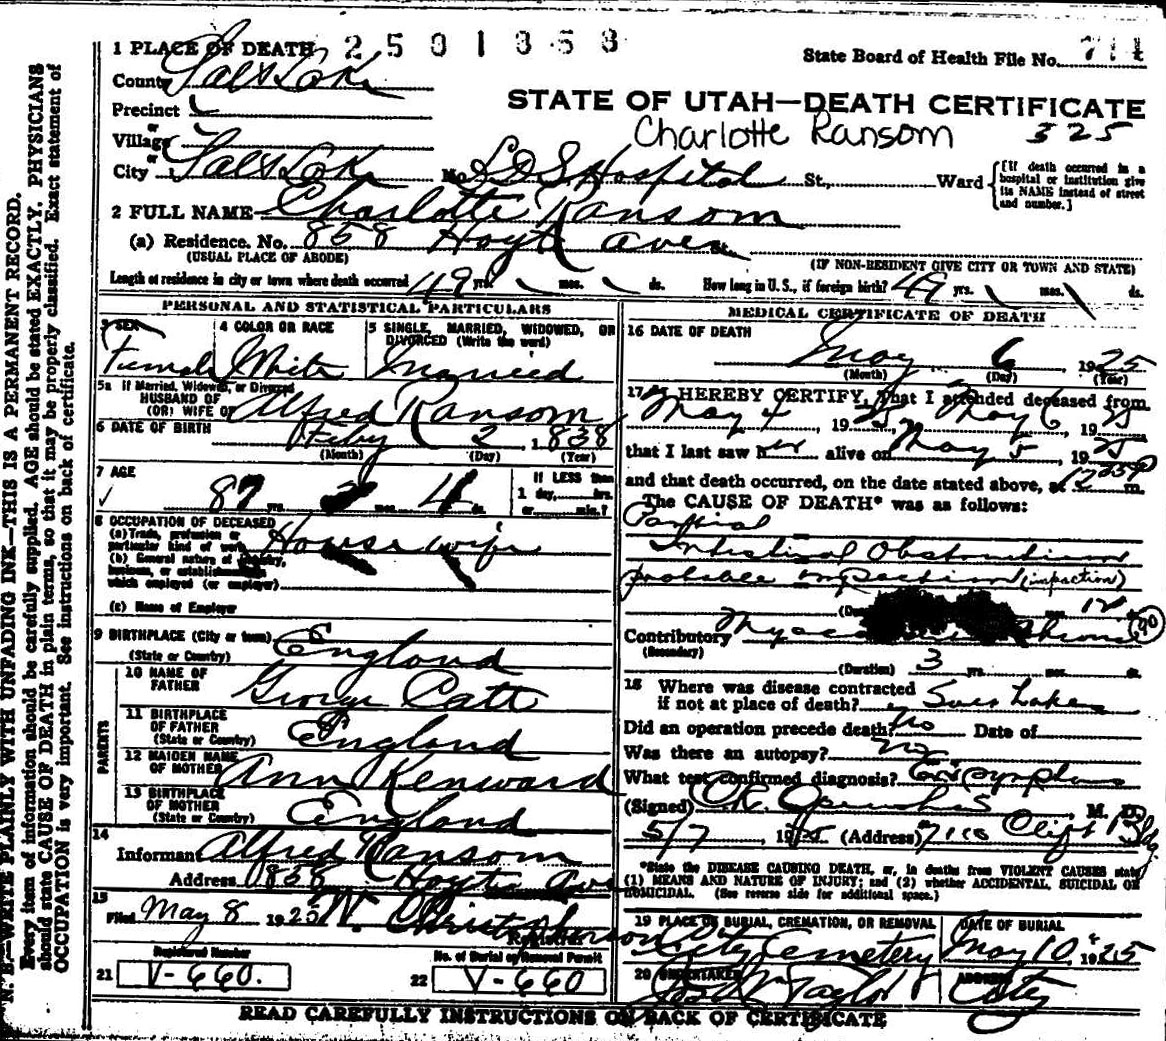 N. B.—WRITE PLAINLY WITH UNFADING INK—THIS IS A PERMANENT RECORD.
Every item of information should be carefully supplied. AGE should be stated EXACTLY. PHYSICIANS
should state CAUSE OF DEATH in plain terms, so that it may be properly classified. Exact statement of
OCCUPATION is very important. See instructions on back of certificate.
1 PLACE OF DEATH 2501358
State Board of Health File No. 714
County Salt Lake
STATE OF UTAH—DEATH CERTIFICATE
Precinct
Charlotte Ransom 325
or
Village
or
City Salt Lake No. LDS Hospital St., Ward
[If death occurred in a
hospital or institution give
its NAME instead of street
and number.]
2 FULL NAME Charlotte Ransom
(a) Residence. No. 858 Hoyt Ave St.
(USUAL PLACE OF ABODE)
(IF NON-RESIDENT GIVE CITY OR TOWN AND STATE)
Length of residence in city or town where death occurred 49 yrs. mos. ds. How long in U. S., if foreign birth? 49 yrs. mos. ds.
PERSONAL AND STATISTICAL PARTICULARS
3 SEX
Female
4 COLOR OR RACE
White
5 SINGLE, MARRIED, WIDOWED, OR
DIVORCED (Write the word)
Married
5a If Married, Widowed, or Divorced
HUSBAND OF
(OR) WIFE OF Alfred Ransom
6 DATE OF BIRTH Feby 2, 1838
(Month) (Day) (Year)
7 AGE
87 yrs. 3 mos. 4 ds.
If LESS than
1 day, hrs.
or min.?
8 OCCUPATION OF DECEASED
(a) Trade, profession or
particular kind of work Housewife
(b) General nature of industry,
business, or establishment in
which employed (or employer)
(c) Name of Employer
9 BIRTHPLACE (City or town)
(State or Country) England
PARENTS
10 NAME OF
FATHER George Catt
11 BIRTHPLACE
OF FATHER
(State or Country) England
12 MAIDEN NAME
OF MOTHER Ann Kenward
13 BIRTHPLACE
OF MOTHER
(State or Country) England
14
Informant Alfred Ransom
Address 858 Hoyt Ave
15
Filed May 8 1925 W. Christopherson
Registrar
Registered Number
21 V-660.
No. of Burial or Removal Permit
22 V-660
MEDICAL CERTIFICATE OF DEATH
16 DATE OF DEATH
May 6, 1925
(Month) (Day) (Year)
17 I HEREBY CERTIFY, That I attended deceased from
May 4, 1925, May 6, 1925
that I last saw her alive on May 5, 1925
and that death occurred, on the date stated above, at m.
The CAUSE OF DEATH* was as follows:
Partial
Intestinal Obstruction
probable impaction (impaction)
Contributory
(Secondary)
90
(Duration) 3 yrs. mos. ds.
18 Where was disease contracted
if not at place of death?
Did an operation precede death? No Date of
Was there an autopsy? No
What test confirmed diagnosis? symptoms
(Signed) M. D.
5/7 1925 (Address) Clift Bldg.
*State the DISEASE CAUSING DEATH, or, in deaths from VIOLENT CAUSES state
(1) MEANS AND NATURE OF INJURY; and (2) whether ACCIDENTAL, SUICIDAL OR
HOMICIDAL. (See reverse side for additional space.)
19 PLACE OF BURIAL, CREMATION, OR REMOVAL
City Cemetery
DATE OF BURIAL
May 10, 1925
20 UNDERTAKER
Jos Wm Taylor
ADDRESS
City
READ CAREFULLY INSTRUCTIONS ON BACK OF CERTIFICATE